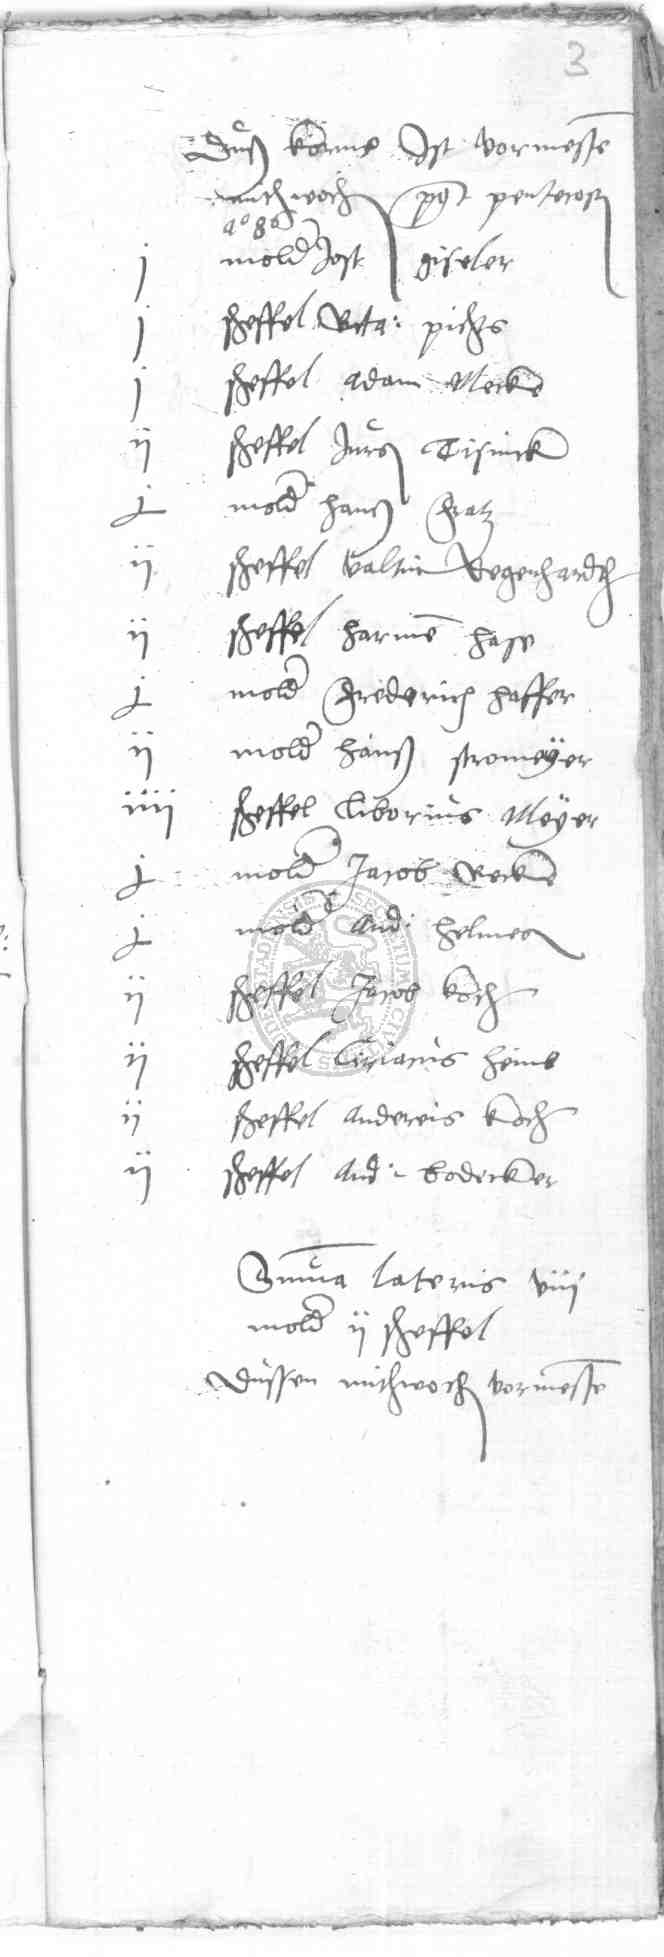 3
Duß korne Ist vormessē
mithwoch pq̄t pentecost
aᵒ 86
j mold Jost giseler
j scheffel Urba: pichts
j scheffel adam Mecke
ij scheffel Jurg Tisinck
j mold hanß Fratz
ij scheffel valtin Degenhardt
ij scheffel harmē hase
j mold Frederich haffer
ij mold hanß stromeÿer
iiij scheffel Liborius Meÿer
j mold Jacob Becke
j mold And: helmes
ij scheffel Jacob koch
ij scheffel Ciriacus heine
ij scheffel andereis koch
ij scheffel And: bodecker
Suma̅ lateris viij
mold ij scheffel
dussen mithwoch vormessē